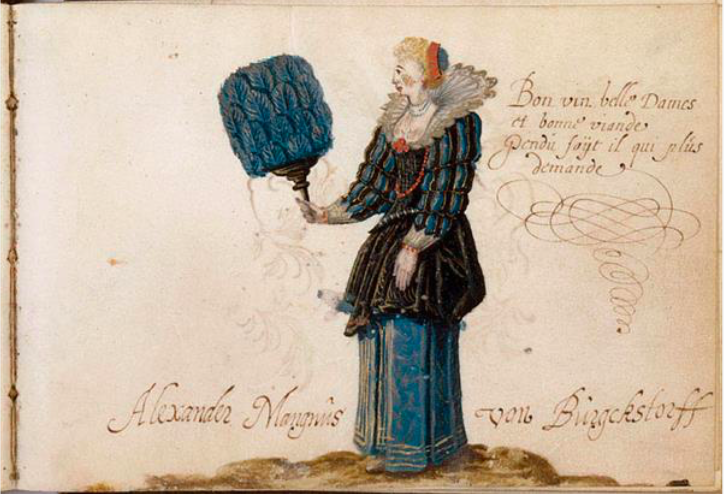 Bon vin belle Dames
et bonne viande
Pendu soÿt il qui plus
demande
Alexander Mangnus von Burgckstorff